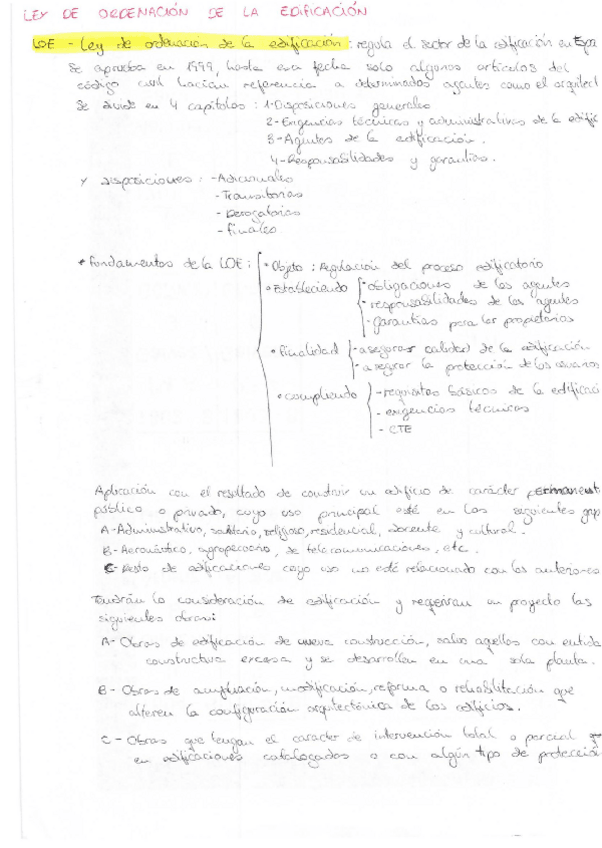 LEY DE ORDENACIÓN DE LA EDIFICACIÓN
LOE - Ley de ordenación de la edificación: regula el sector de la edificación en Espa
Se aprueba en 1999, hasta esa fecha solo algunos artículos del
código civil hacían referencia a determinados agentes como el arquitect
Se divide en 4 capítulos: 1-Disposiciones generales
2-Exigencias técnicas y administrativas de la edific
3-Agentes de la edificación.
4-Responsabilidades y garantías.
Y disposiciones: -Adicionales
-Transitorias
-Derogatorias
-finales
* fundamentos de la LOE:
• Objeto: Regulación del proceso edificatorio
• Estableciendo
-obligaciones de los agentes
-responsabilidades de los agentes
-garantías para los propietarios
• finalidad
-asegurar calidad de la edificación
-asegurar la protección de los usuarios
• cumpliendo
-requisitos básicos de la edificaci
-exigencias técnicas
-CTE
Aplicación con el resultado de construir un edificio de carácter permanent
público o privado, cuyo uso principal esté en los siguientes grup
A-Administrativo, sanitario, religioso, residencial, docente y cultural.
B-Aeronáutico, agropecuario, de telecomunicaciones, etc.
C-Resto de edificaciones cuyo uso no esté relacionado con los anteriores
Tendrán la consideración de edificación y requerirán un proyecto las
siguientes obras:
A- Obras de edificación de nueva construcción, salvo aquellas con entida
constructiva escasa y se desarrollen en una sola planta.
B- Obras de ampliación, modificación, reforma o rehabilitación que
alteren la configuración arquitectónica de los edificios.
C- Obras que tengan el carácter de intervención total o parcial
en edificaciones catalogadas o con algún tipo de protecció